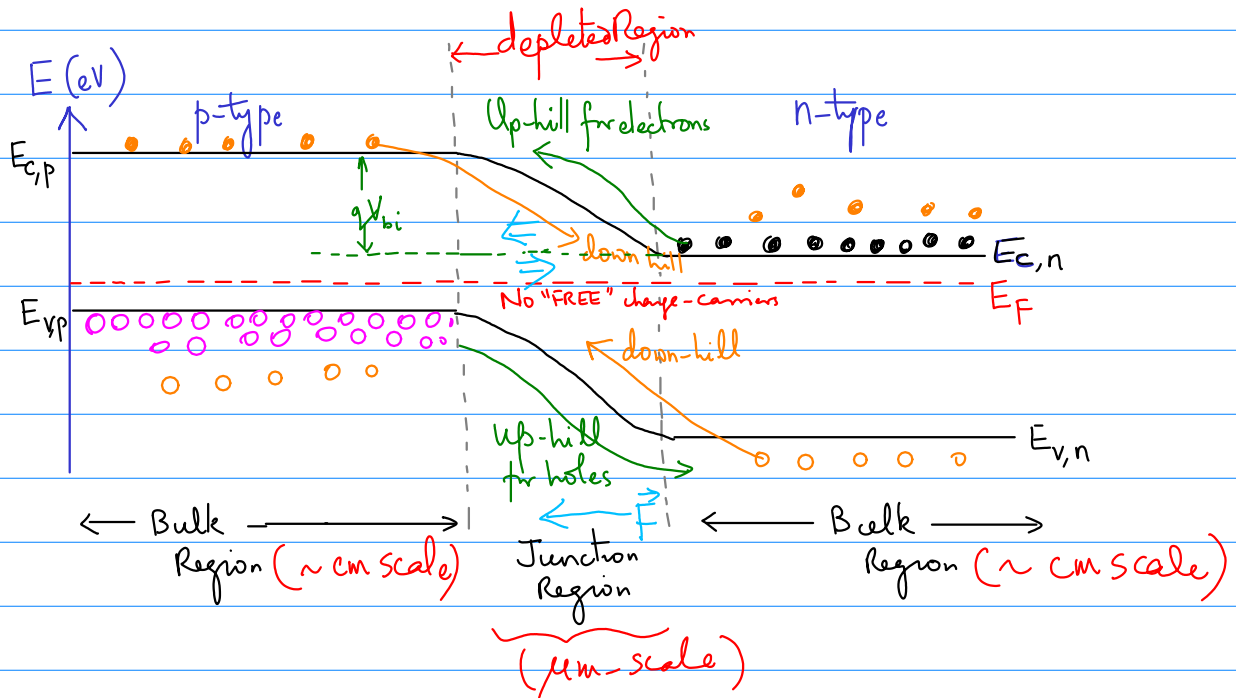 depleted Region
E (eV)
p-type
Up-hill for electrons
n-type
E_{c,p}
qV_{bi}
down hill
E_{c,n}
No "FREE" charge-carriers
E_F
E_{v,p}
down-hill
up-hill
for holes
E_{v,n}
F
Bulk
Region (~ cm scale)
Junction
Region
Bulk
Region (~ cm scale)
(μm-scale)